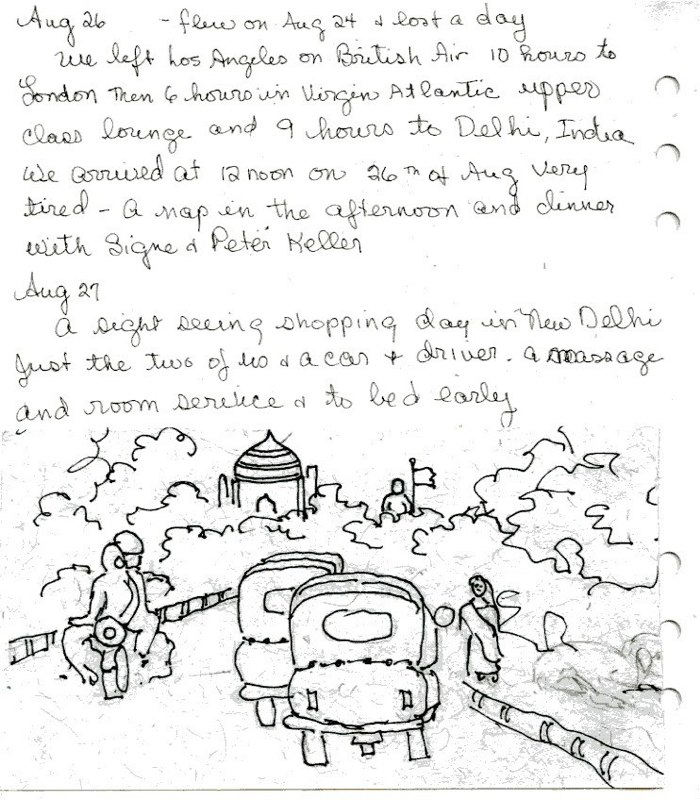 Aug 26 - flew on Aug 24 & lost a day
We left Los Angeles on British Air 10 hours to
London Then 6 hours in Virgin Atlantic upper
class lounge and 9 hours to Delhi, India
We arrived at 12 noon on 26th of Aug very
tired - a nap in the afternoon and dinner
with Signe & Peter Keller
Aug 27
a sight seeing shopping day in New Delhi
Just the two of us & a car & driver. a massage
and room service & to bed early